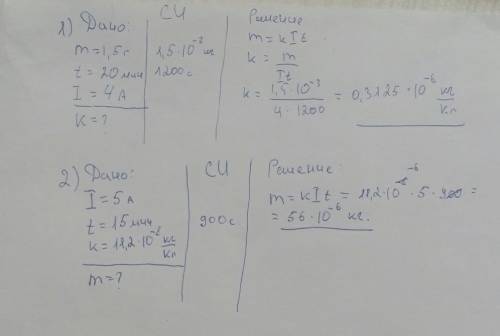 1) Дано: СИ Решение
m = 1,5 г 1,5·10⁻³ кг m = kIt
t = 20 мин 1200 с k = m/It
I = 4 А k = 1,5·10⁻³/4·1200 = 0,3125·10⁻⁶ кг/Кл
k = ?
2) Дано: СИ Решение:
I = 5 А m = kIt = 11,2·10⁻⁶·5·900 =
t = 15 мин 900 с = 56·10⁻⁶ кг.
k = 11,2·10⁻² кг/Кл
m = ?